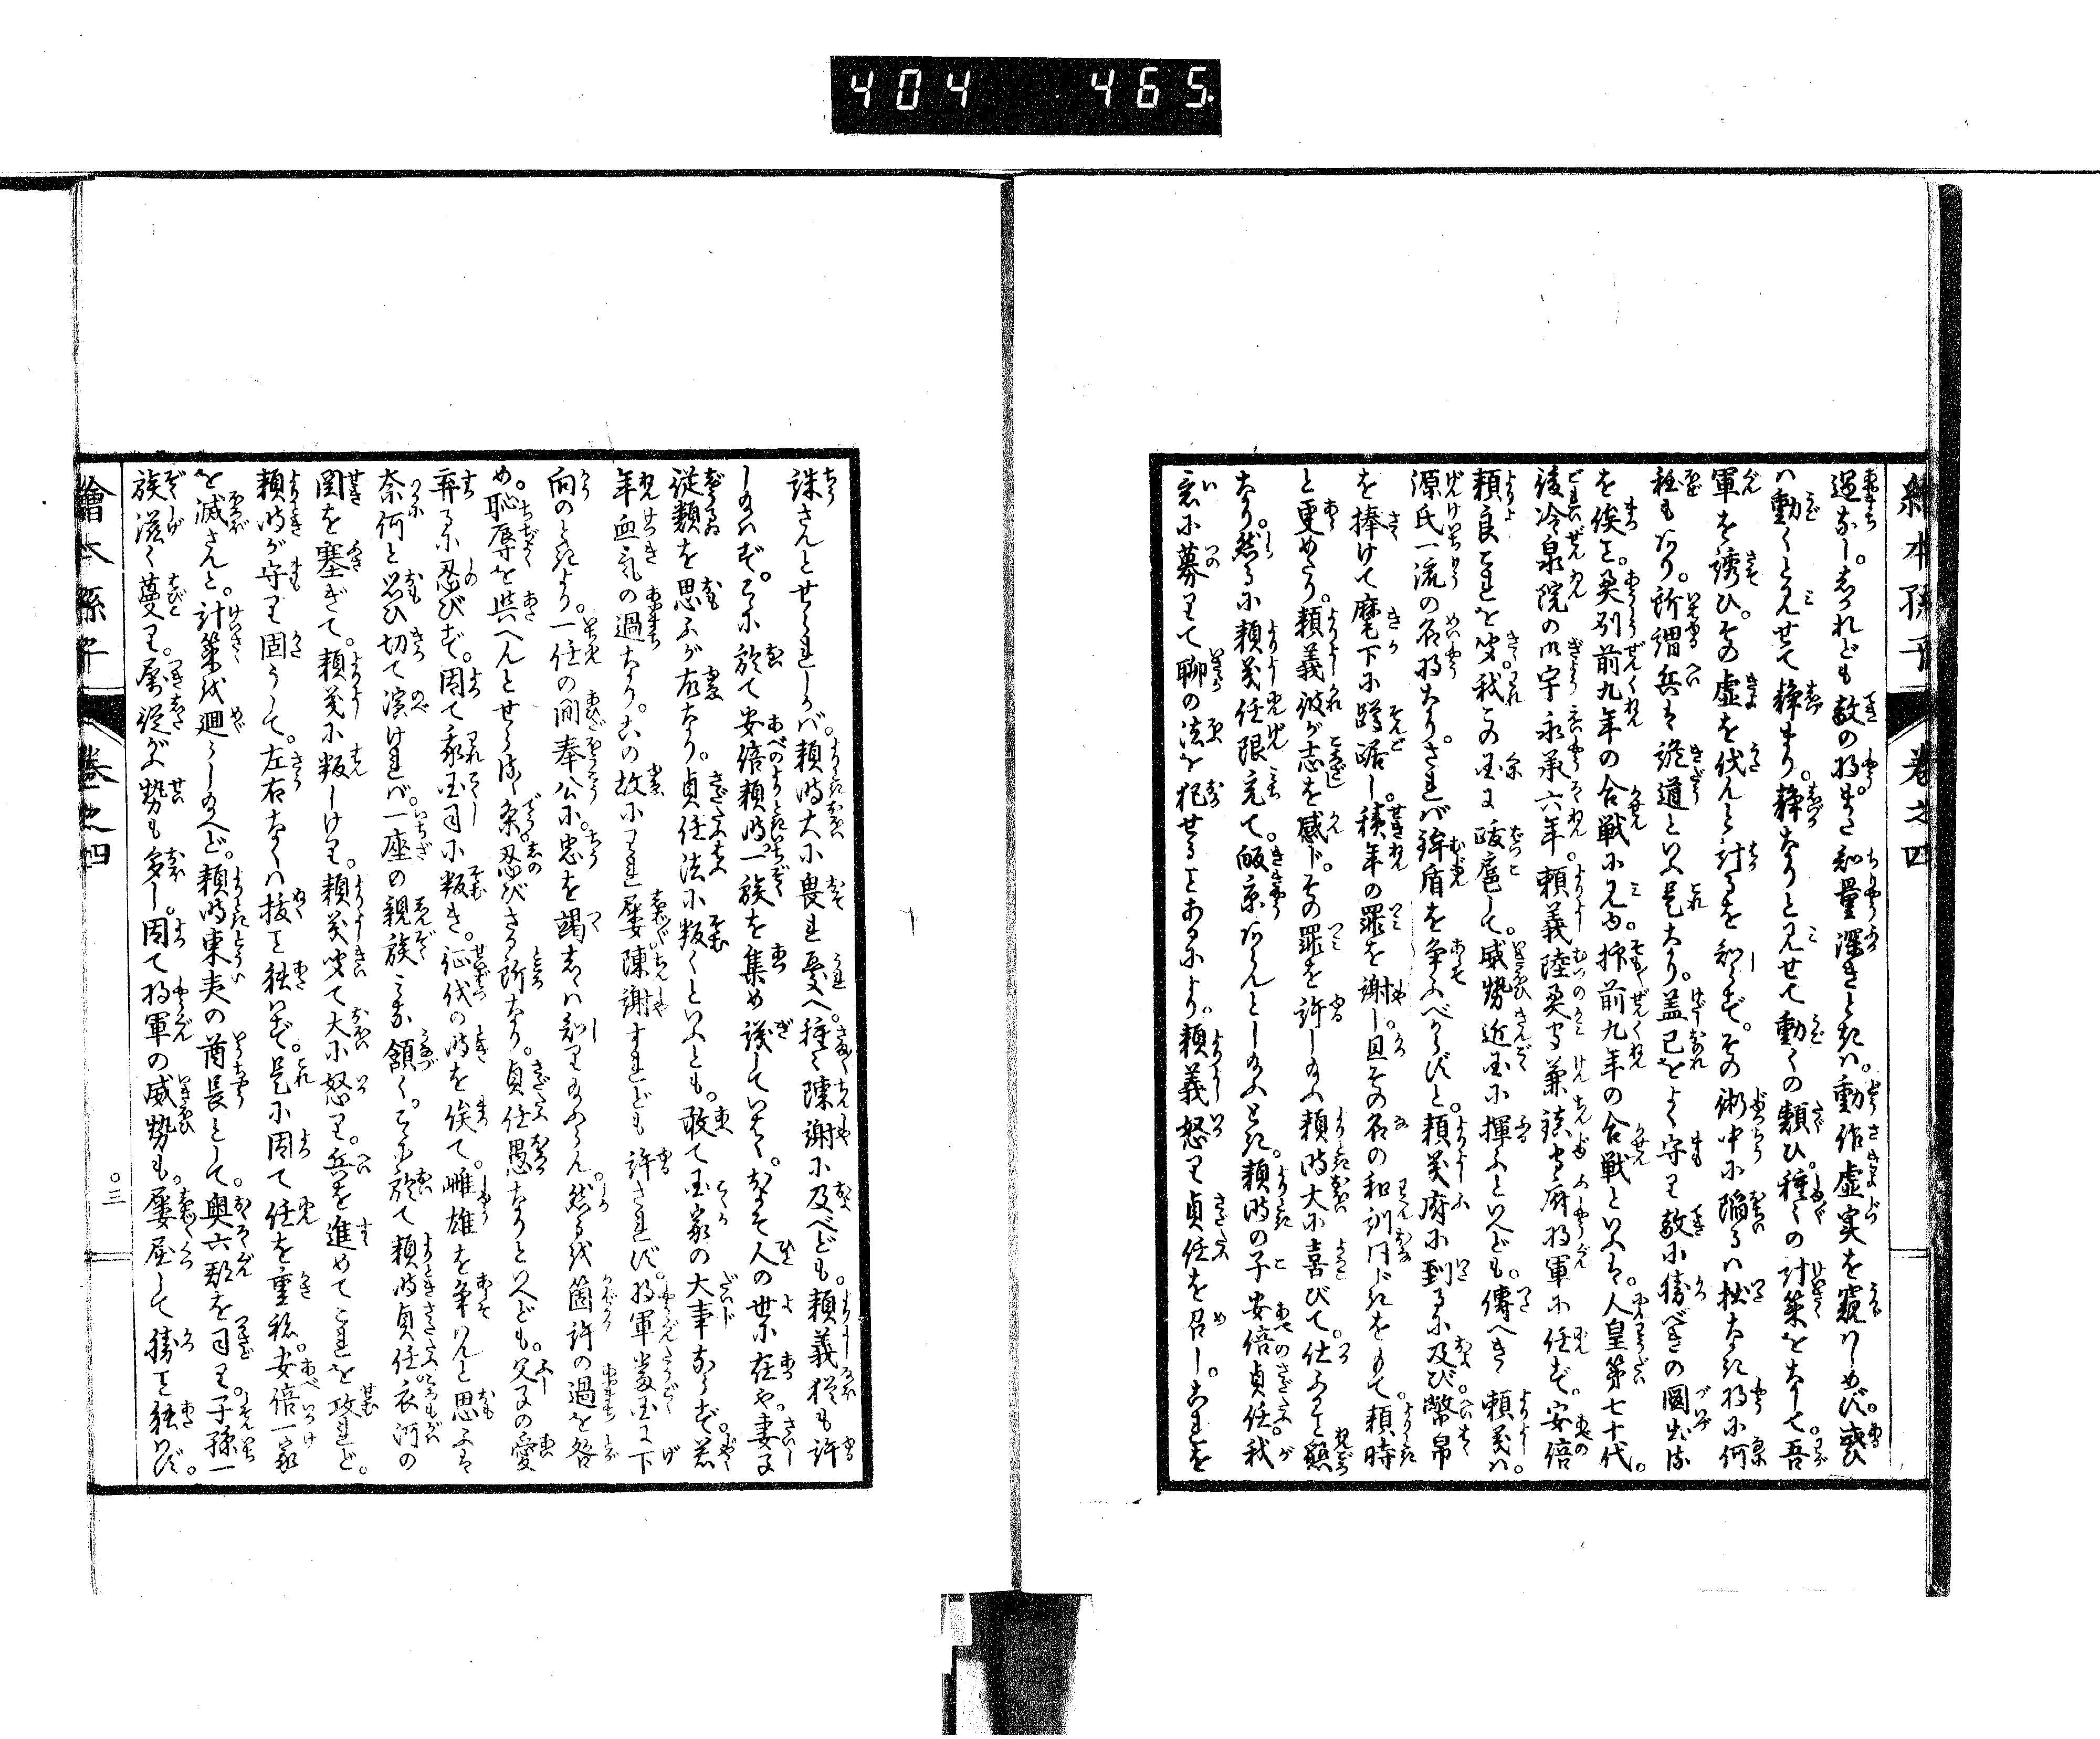 404 465
繪本孫子 卷之四
過なし。しかれども敵の将。また知量深きときハ。動作虚実を窺ハしめず。或ひ
ハ動くと見せて静まり。静なりと見せて動くの類ひ。種々の計策をなして。吾
軍を誘ひ。その虚を伐んと計るを知らず。その術中に陥るハ拙なき将に何
程もあり。所謂兵は詭道といふ是なり。蓋己をよく守りて敵に勝べきの圖出る
を俟こと。奥列前九年の合戦に見ゆ。抑前九年の合戦といふは。人皇第七十代。
後冷泉院の御宇永承六年。頼義陸奥守兼鎮守府将軍に任ず。安倍
頼良これを聞我この国に跋扈して。威勢近国に揮ふといへども。傳へきく頼義ハ。
源氏一流の名将なり。されバ鉾盾を争ふべからずと。頼義府に到るに及び。幣帛
を捧けて麾下に蹲踞し。積年の罪を謝し。且その名の和訓同じきをもて。頼時
と更めたり。頼義彼が志を感じ。その罪を許し給ふ頼時大に喜びて。仕ふること懇
なり。然るに頼義任限充て。皈京あらんとし給ふとき。頼時の子安倍貞任。我
意に募りて聊の法を犯せることあるにより。頼義怒りて貞任を召し。これを
誅さんとせられしかバ。頼時大に畏れ憂へ。種々陳謝に及べども。頼義猶も許
し給ハず。こゝに於て安倍頼時。一族を集め議していはく。およそ人の世に在や。妻子
従類を思ふが故なり。貞任法に叛くといふとも。敢て国家の大事ならず。若
年血気の過なり。この故にわれ屡陳謝すれども許されず。将軍當国に下
向のときより。一任の間奉公に。忠を竭せしハ知り給ふらん。然るを箇許の過を咎
め。恥辱を與へんとせらるゝ条。忍びざる所なり。貞任愚なりといへども。父子の愛
弃るに忍びず。因て我国司に叛き。征伐の時を俟て。雌雄を争ハんと思ふは
奈何と思ひ切て演けれバ。一座の親族ミな額く。こゝに於て頼時貞任。衣河の
関を塞ぎて。頼義に叛しけり。頼義聞て大に怒り。兵を進めてこれを攻れど。
頼時が守り固うして。左右なくハ抜こと能ハず。是に因て任を重ね。安倍一家
を滅さんと。計策を廻らし給へど。頼時東夷の酋長として。奥六郡を司り。子孫一
族滋く蔓り。属従がふ勢も多し。因て将軍の威勢も。屡屈して勝こと能ハず。
繪本孫子 卷之四 三